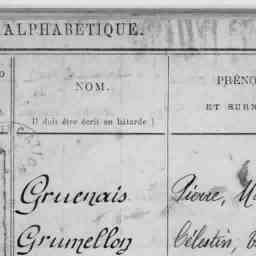 ALPHABÉTIQUE.
NOM.
Il doit être écrit en bâtarde
PRÉNO
ET SURN
Gruenais
Pierre, M
Grumellon
Célestin,